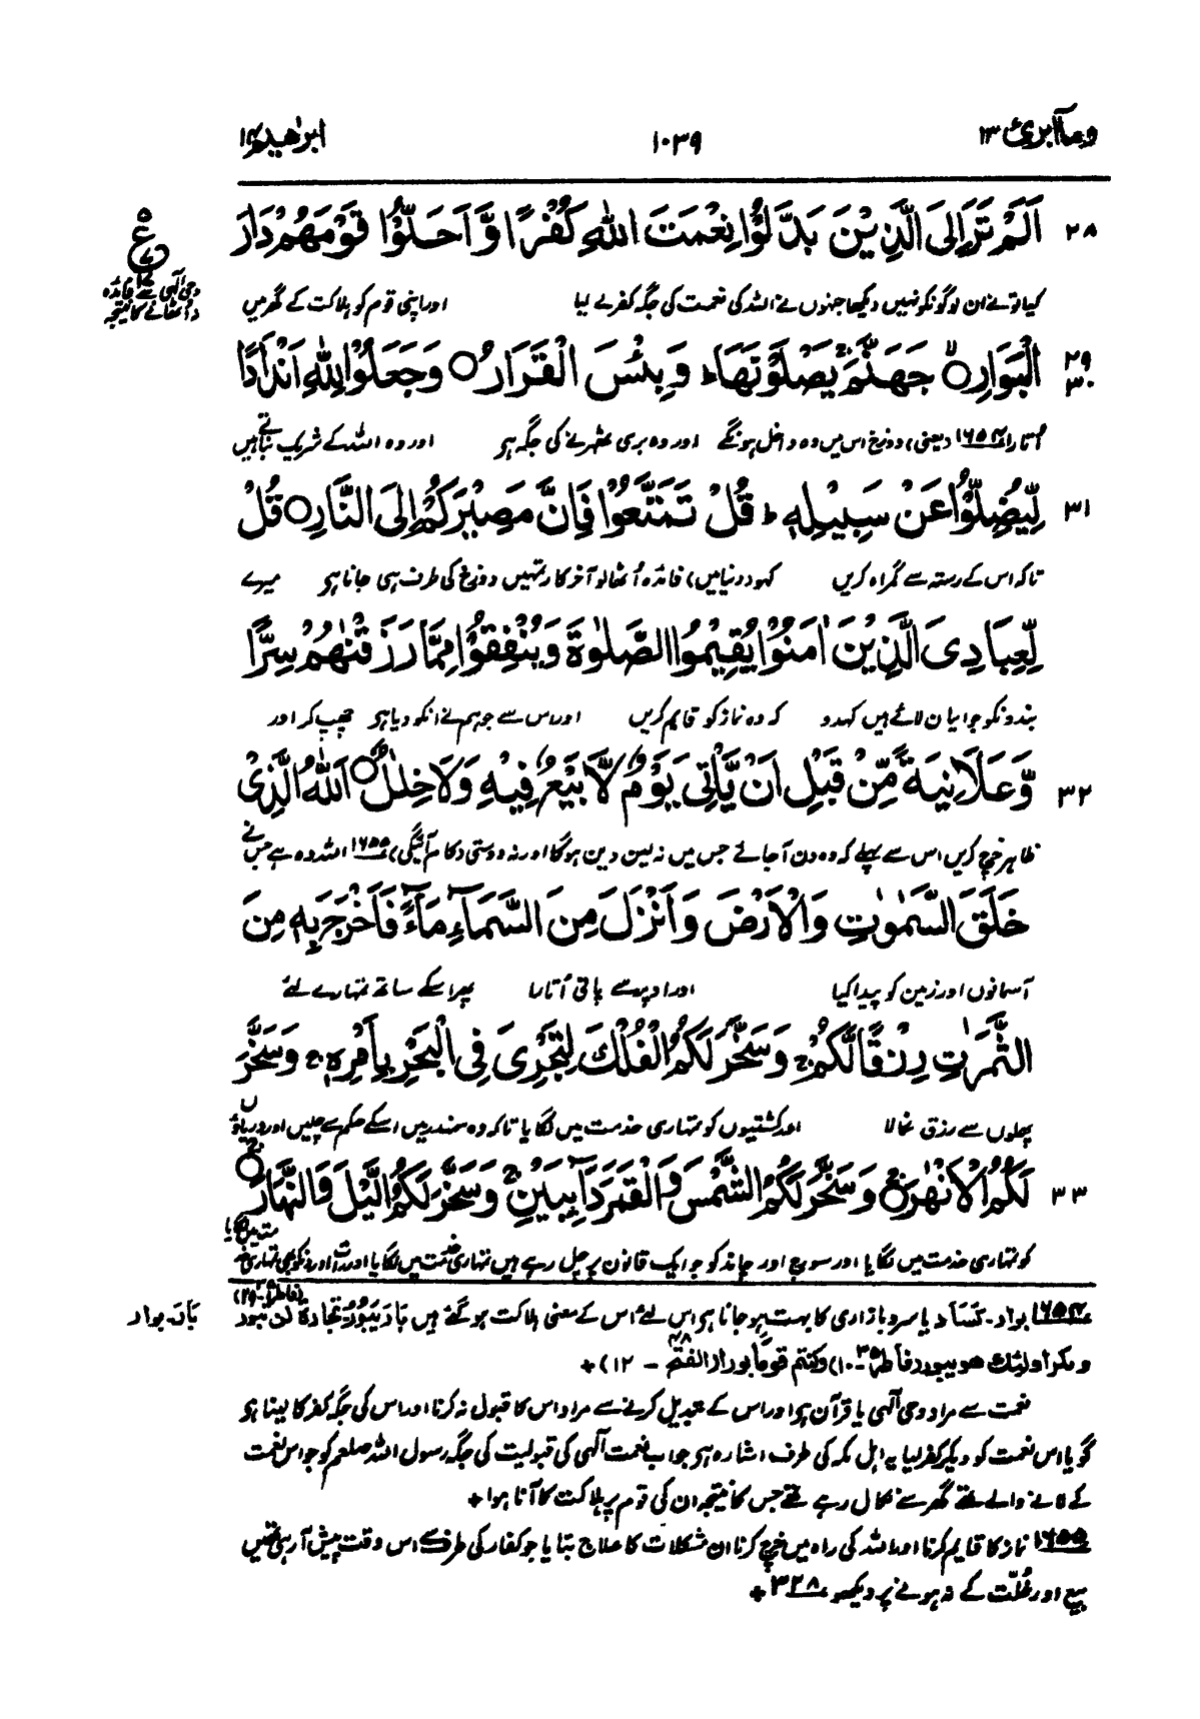 وما ابرئ ۱۳
۱۰۳۹
ابرٰھیم ۱۴
۲۸ اَلَمْ تَرَ اِلَى الَّذِیْنَ بَدَّلُوْا نِعْمَتَ اللهِ كُفْرًا وَّاَحَلُّوْا قَوْمَهُمْ دَارَ
ع
کیا تو نے ان لوگونکو نہیں دیکھا جنہوں نے اللہ کی نعمت کی جگہ کفر لے لیا اور اپنی قوم کو ہلاکت کے گھر میں
وحی الٰہی سے فائدہ
نہ اٹھانے کا نتیجہ
۲۹ ۳۰ الْبَوَارِ ۙ جَهَنَّمَ ۚ یَصْلَوْنَهَا ؕ وَ بِئْسَ الْقَرَارُ ۝ وَجَعَلُوْا لِلّٰهِ اَنْدَادًا
اُتارا ۱۶۵۴ (یعنی) دوزخ اس میں وہ داخل ہونگے اور وہ بری ٹھہرنے کی جگہ ہو اور وہ اللہ کے شریک بناتے ہیں
۳۱ لِّیُضِلُّوْا عَنْ سَبِیْلِهٖ ؕ قُلْ تَمَتَّعُوْا فَاِنَّ مَصِیْرَكُمْ اِلَى النَّارِ ۝ قُلْ
تاکہ اس کے رستہ سے گمراہ کریں کہو (دنیا میں) فائدہ اُٹھا لو آخر کار تمہیں دوزخ کی طرف ہی جانا ہو میرے
لِّعِبَادِیَ الَّذِیْنَ اٰمَنُوْا یُقِیْمُوا الصَّلٰوةَ وَیُنْفِقُوْا مِمَّا رَزَقْنٰهُمْ سِرًّا
بندونکو جو ایمان لائے ہیں کہدو کہ وہ نماز کو قایم کریں اور اس سے جو ہم نے انکو دیا ہو چھپ کر اور
۳۲ وَّعَلَانِیَةً مِّنْ قَبْلِ اَنْ یَّاْتِیَ یَوْمٌ لَّا بَیْعٌ فِیْهِ وَلَا خِلٰلٌ ۝ اَللهُ الَّذِیْ
ظاہر خرچ کریں اس سے پہلے کہ وہ دن آجائے جس میں نہ لین دین ہوگا اور نہ دوستی (کام آئیگی) ۱۶۵۵ اللہ وہ ہے جس نے
خَلَقَ السَّمٰوٰتِ وَالْاَرْضَ وَاَنْزَلَ مِنَ السَّمَآءِ مَآءً فَاَخْرَجَ بِهٖ مِنَ
آسمانوں اور زمین کو پیدا کیا اور اوپر سے پانی اُتارا پھر اسکے ساتھ تمہارے لئے
الثَّمَرٰتِ رِزْقًا لَّكُمْ ۚ وَسَخَّرَ لَكُمُ الْفُلْكَ لِتَجْرِیَ فِی الْبَحْرِ بِاَمْرِهٖ ۚ وَسَخَّرَ
پھلوں سے رزق نکالا اور کشتیوں کو تمہاری خدمت میں لگایا تاکہ وہ سمندر میں اسکے حکم سے چلیں اور دریاؤں
۳۳ لَكُمُ الْاَنْهٰرَ ۚ وَسَخَّرَ لَكُمُ الشَّمْسَ وَالْقَمَرَ دَآىِٕبَیْنِ ۚ وَسَخَّرَ لَكُمُ الَّیْلَ وَالنَّهَارَ ۝
کو تمہاری خدمت میں لگایا اور سورج اور چاند کو جو ایک قانون پر چل رہے ہیں تمہاری خدمت میں لگایا اور رات اور دنکو بھی تمہاری خدمت میں لگایا
۱۶۵۴ بوار۔ کساد یا سرد بازاری کا بہت ہو جانا ہو اس لئے اس کے معنی ہلاکت ہو گئے ہیں بَارَ یَبُوْرُ تجارة لن تبور (فاطر ۔۲۹)
بَار۔ بوار
ومکر اولئک هو یبور (فاطر ۳۵۔۱۰) وکنتم قوما بورا (الفتح ۴۸ ۔ ۱۲)+
نعمت سے مراد وحی الٰہی یا قرآن ہو اور اس کے تبدیل کرنے سے مراد اس کا قبول نہ کرنا اور اس کی جگہ کفر کا لینا ہو
گویا اس نعمت کو دیکر کفر لیا یہ اہل مکہ کی طرف اشارہ ہو جو اب نعمت الٰہی کی قبولیت کی جگہ رسول اللہ صلعم کو جو اس نعمت
کے لانے والے تھے گھر سے نکال رہے تھے جس کا نتیجہ ان کی قوم پر ہلاکت کا آنا ہوا +
۱۶۵۵ نماز کا قایم کرنا اور اللہ کی راہ میں خرچ کرنا ان مشکلات کا علاج بتایا جو کفار کی طرف سے اس وقت پیش آرہی تھیں
بیع اور خُلّت کے نہ ہونے پر دیکھو ۳۲۸ +